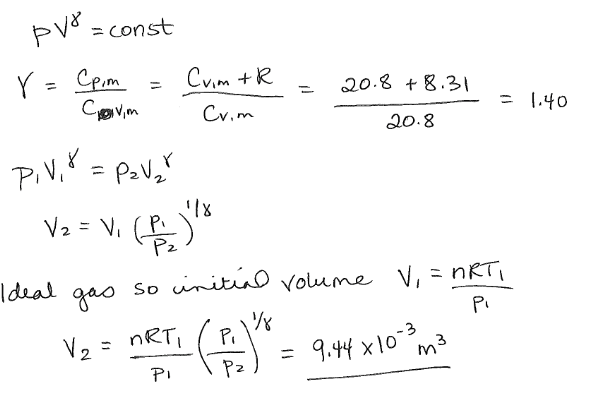 pV^γ = const
γ = C_{p,m} / C_{v,m} = (C_{v,m} + R) / C_{v,m} = (20.8 + 8.31) / 20.8 = 1.40
P₁V₁^γ = P₂V₂^γ
V₂ = V₁ (P₁/P₂)^{1/γ}
Ideal gas so initial volume V₁ = nRT₁ / P₁
V₂ = nRT₁/P₁ (P₁/P₂)^{1/γ} = 9.44 x10⁻³ m³